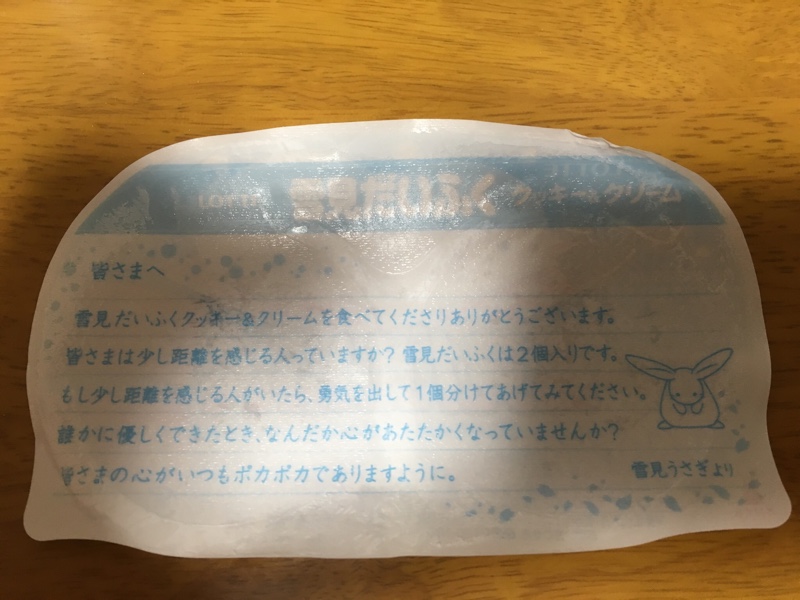 LOTTE 雪見だいふく クッキー&クリーム
皆さまへ
雪見だいふくクッキー&クリームを食べてくださりありがとうございます。
皆さまは少し距離を感じる人っていますか? 雪見だいふくは2個入りです。
もし少し距離を感じる人がいたら、勇気を出して1個分けてあげてみてください。
誰かに優しくできたとき、なんだか心があたたかくなっていませんか?
皆さまの心がいつもポカポカでありますように。
雪見うさぎより